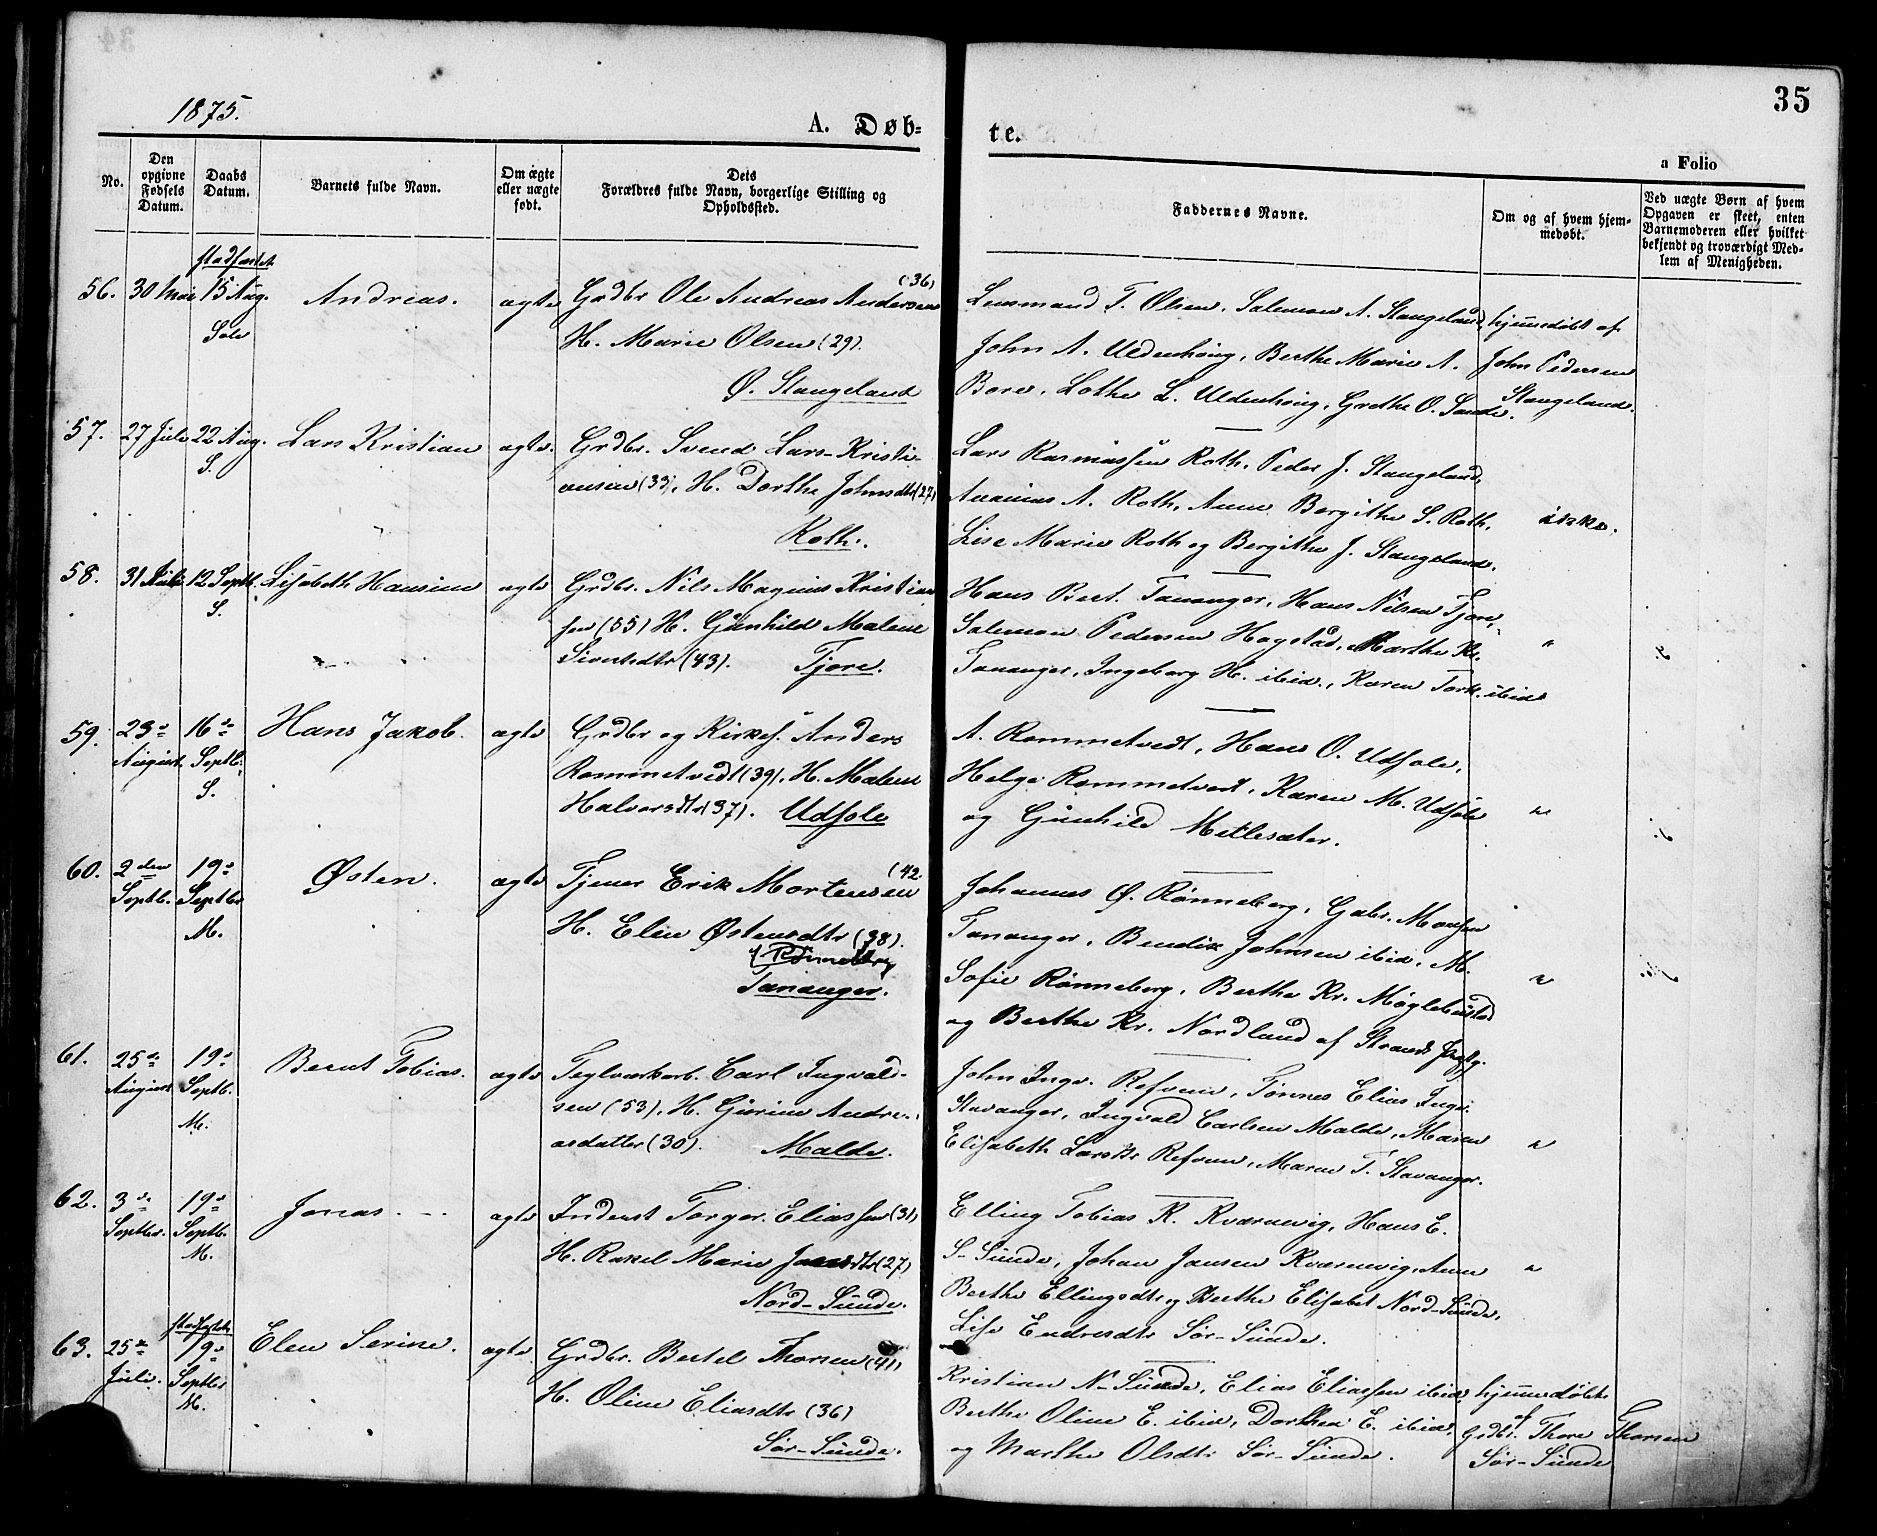 35
1875.
A. Døb-
te.
a Folio
No.
Den opgivne Fødsels Datum.
Daabs Datum.
Barnets fulde Navn.
Om ægte eller uægte født.
Dets Forældres fulde Navn, borgerlige Stilling og Opholdssted.
Faddernes Navne.
Om og af hvem hjemmedøbt.
Ved uægte Børn af hvem Opgaven er skeet, enten Barnemoderen eller hvilket bekjendt og troværdigt Medlem af Menigheden.
stadfæstet
56. 30 Mai 15 Aug. Andreas. ægte Grdbr Ole Andreas Andersen (36)
Sole H. Marie Olsen (29).
Ø. Stangeland
Lensmand T. Olsen, Salemon A. Stangeland, hjemmedøbt af
John A. Uldenhaug, Berthe Marie A. John Pedersen
Bore, Lothe L. Uldenhaug, Grethe O. Sande. Stangeland.
57. 27 Juli 22 Aug. Lars Kristian ægte. Grdbr. Svend Lars-Kristi-
S. ansen (33), H. Dorthe Johnsdtr (27)
Roth.
Lars Rasmussen Roth, Peder J. Stangeland,
Ananias A. Roth, Anne Bergithe S. Roth, ikke.
Lise Marie Roth og Bergithe J. Stangeland.
58. 31 Juli 12 Septb. Lisabeth Hansine ægte Grdbr. Nils Magnus Kristian
S. sen (55) H. Gunhild Malene
Sivertsdtr (43). Tjore.
Hans Bert. Tananger, Hans Nilsen Tjore,
Salemon Pedersen Hogstad, Marthe Kr. "
Tananger, Ingeborg H. ibid., Karen Tork. ibid
59. 23de 16de Hans Jakob. ægte Grdbr og Kirkes. Anders
August. Septb. Rommetvedt (39), H. Malene
S. Halvorsdtr (37). Udsole
A. Rommetvedt, Hans O. Udsole,
Helge Rommetvedt, Karen M. Udsole "
og Gunhild Metlesæter.
60. 2den 19de Østen. ægte Tjener Erik Mortensen (42
Septb. Septbr H. Elen Østensdtr (38).
M.
Tananger.
Johannes Ø. Rønneberg, Gabr. Monsen
Tananger, Bendix Johnsen ibid, M.
Sofie Rønneberg, Berthe Kr. Møglebustad "
og Berthe Kr. Nordland af Strands Prstg.
61. 25de 19de Bernt Tobias. ægte Teglværkarb. Carl Ingvald-
August Septb. sen (53), H. Gurine Andre-
M. asdatter (30). Malde.
John Ingv. Refvem, Tønnes Elias Ingv.
Stavanger, Ingvald Carlsen Malde, Maren "
Elisabeth Larsdtr Refvem, Maren T. Stavanger.
62. 3de 19de Jonas. ægte Inderst Torger Eliassen (31)
Septbr. Septb. H. Rakel Marie (27)
M. Nord-Sunde.
Elling Tobias K. Kvernevig, Hans E.
S-Sunde, Johan Jansen Kvernevig, Anne "
Berthe Ellingsdtr og Berthe Elisabet Nord-Sunde,
Lise Endresdtr Sør-Sunde.
stadfæstet
63. 25de 19de Elen Serine. ægte. Grdbr. Bertel Thorsen (41)
Juli. Septbr H. Oline Eliasdtr (36)
M. Sør-Sunde.
Kristian N-Sunde, Elias Eliassen ibid, hjemmedøbt
Berthe Oline E. ibid, Dorthea E. ibid, af Grdbr. Thore Thorsen
og Marthe Olsdtr Sør-Sunde. Sør-Sunde